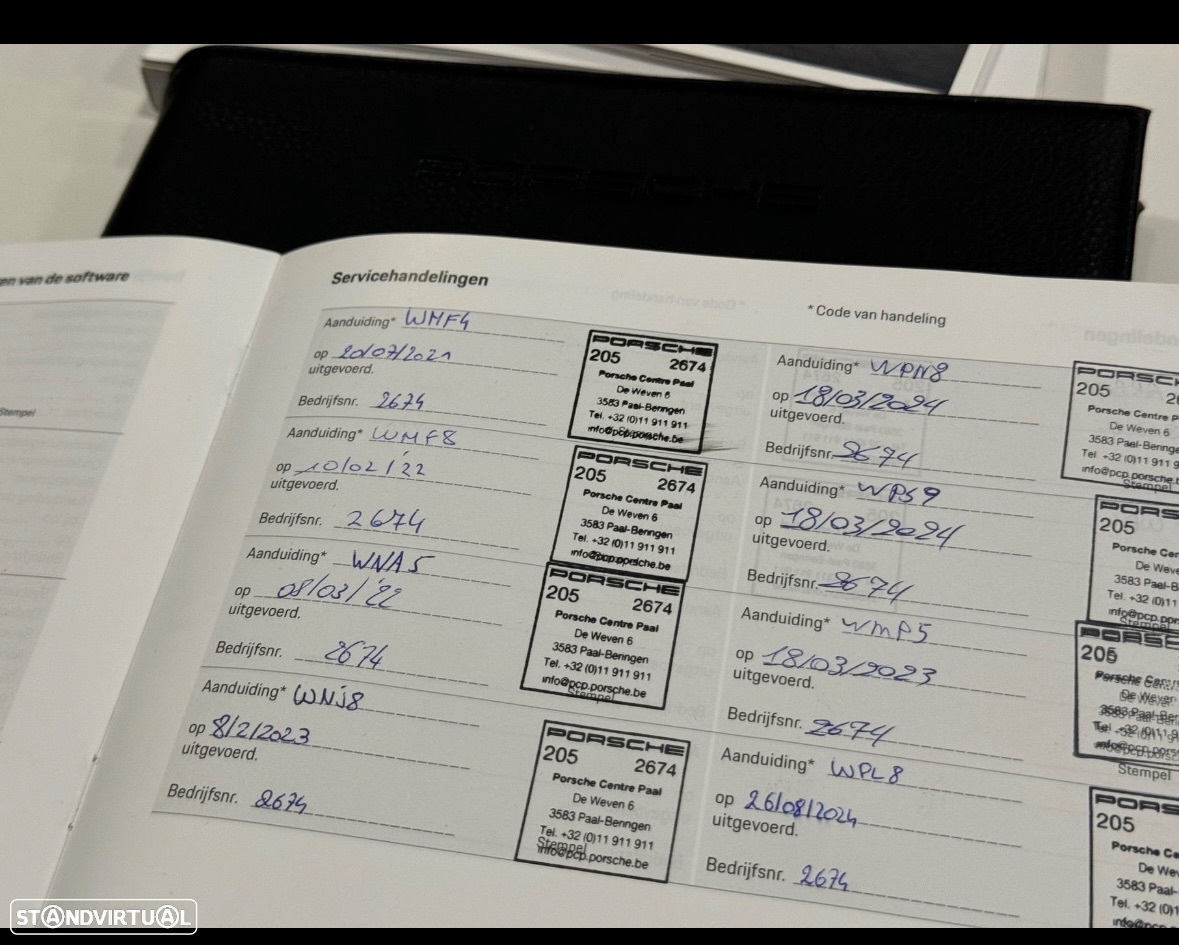 PORSCHE
en van de software
Stempel
Servicehandelingen
* Code van handeling
Aanduiding* WMF4
op 20/07/2021
uitgevoerd.
Bedrijfsnr. 2674
PORSCHE
205 2674
Porsche Centre Paal
De Weven 6
3583 Paal-Beringen
Tel. +32 (0)11 911 911
info@pcp.porsche.be
Aanduiding* WMF8
op 10/02/'22
uitgevoerd.
Bedrijfsnr. 2674
PORSCHE
205 2674
Porsche Centre Paal
De Weven 6
3583 Paal-Beringen
Tel. +32 (0)11 911 911
info@pcp.porsche.be
Aanduiding* WNA5
op 08/03/'22
uitgevoerd.
Bedrijfsnr. 2674
PORSCHE
205 2674
Porsche Centre Paal
De Weven 6
3583 Paal-Beringen
Tel. +32 (0)11 911 911
info@pcp.porsche.be
Stempel
Aanduiding* WNJ8
op 8/2/2023
uitgevoerd.
Bedrijfsnr. 2674
PORSCHE
205 2674
Porsche Centre Paal
De Weven 6
3583 Paal-Beringen
Tel. +32 (0)11 911 911
Stempel
info@pcp.porsche.be
Aanduiding* WPN8
op 18/03/2024
uitgevoerd.
Bedrijfsnr. 2674
PORSCH
205 2
Porsche Centre P
De Weven 6
3583 Paal-Beringe
Tel. +32 (0)11 911 9
info@pcp.porsche.b
Stempel
Aanduiding* WPS9
op 18/03/2024
uitgevoerd.
Bedrijfsnr. 2674
PORS
205
Porsche Cen
De Weve
3583 Paal-B
Tel. +32 (0)11
info@pcp.por
Stempel
Aanduiding* WMP5
op 18/03/2023
uitgevoerd.
Bedrijfsnr. 2674
PORSC
205
Porsche Cen
De Wever
3583 Paal-Ber
Tel. +32 (0)11 9
Stempel
Aanduiding* WPL8
op 26/08/2024
uitgevoerd.
Bedrijfsnr. 2674
PORS
205
Porsche Ce
De We
3583 Paal-
Tel. +32 (0)1
info@pcp.
STANDVIRTUAL